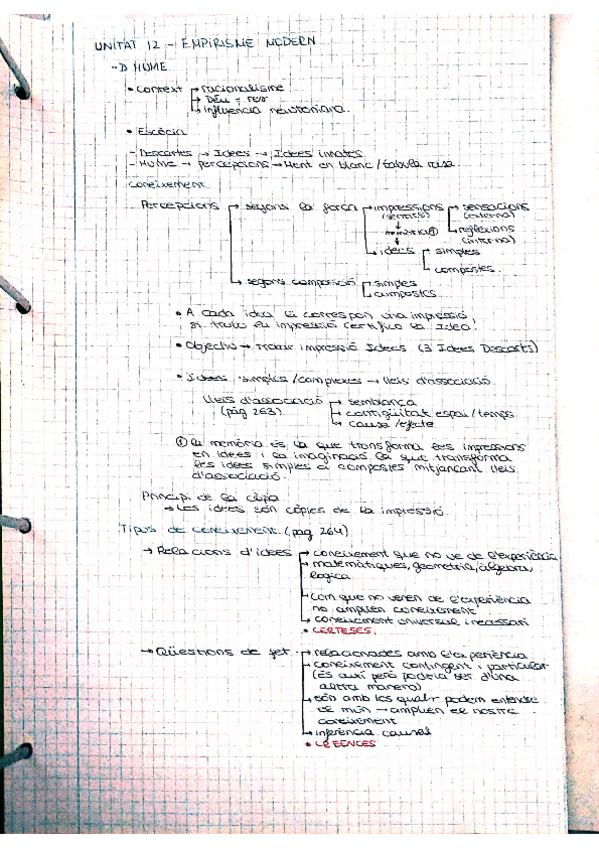 UNITAT 12 - EMPIRISME MODERN
D HUME
• Context → racionalisme
→ Déu - res
→ influència newtoniana
• Escòcia
- Descartes → Idees → Idees innates
- Hume → percepcions → Ment en blanc / tabula rasa
Coneixement
Percepcions → segons la força → impressions → sensacions
(sentits) (externa)
memòria① → reflexions
(interna)
→ idees → simples
→ compostes
→ segons composició → simples
→ compostes
• A cada idea li correspon una impressió,
si trobo la impressió certifico la Idea!
• Objectiu → Trobar impressió Idees (3 Idees Descarts)
• Idees simples / complexes → lleis d'associació
Lleis d'associació → semblança
(pàg 263) → contigüitat espai / temps
→ causa / efecte
① la memòria és la que transforma les impressions
en idees i la imaginació la que transforma
les idees simples a compostes mitjançant lleis
d'associació.
Principi de la còpia
→ Les idees són còpies de la impressió
Tipus de coneixement (pàg 264)
→ Relacions d'idees → coneixement que no ve de l'experiència
→ matemàtiques, geometria, àlgebra,
lògica
→ com que no venen de l'experiència
no amplien coneixement
→ coneixement universal i necessari
• CERTESES.
→ Qüestions de fet → relacionades amb l'experiència
→ coneixement contingent i particular
(és així però podria ser d'una
altra manera)
→ són amb les quals podem entendre
el món → amplien el nostre
coneixement
→ inferència causal
• CREENCES